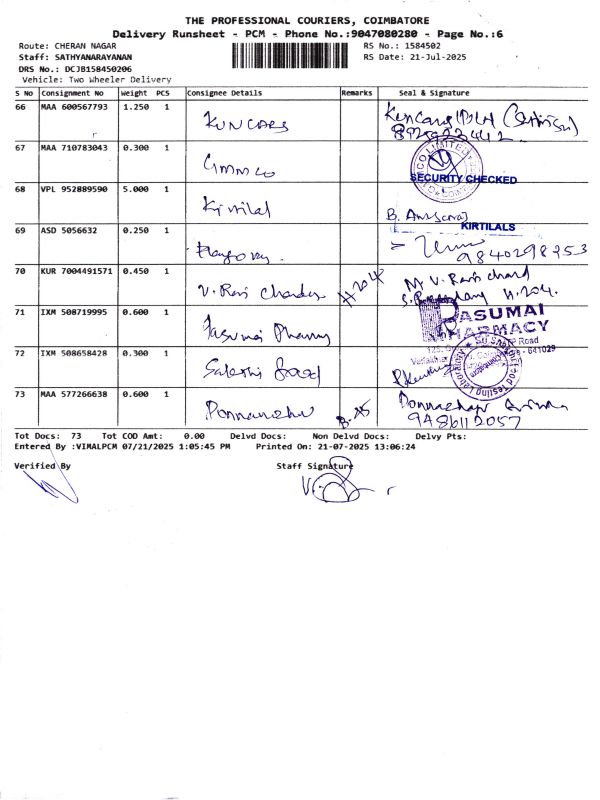 THE PROFESSIONAL COURIERS, COIMBATORE
Delivery Runsheet - PCM - Phone No.:9047080280 - Page No.:6
Route: CHERAN NAGAR RS No.: 1584502
Staff: SATHYANARAYANAN RS Date: 21-Jul-2025
DRS No.: DCJB158450206
Vehicle: Two Wheeler Delivery
S No Consignment No Weight PCS Consignee Details Remarks Seal & Signature
66 MAA 600567793 1.250 1
67 MAA 710783043 0.300 1
SECURITY CHECKED
68 VPL 952889590 5.000 1 Kirtilal
69 ASD 5056632 0.250 1 KIRTILALS
9840298253
70 KUR 7004491571 0.450 1 V. Ravi Chander H204 M V. Ravi chand
H.204.
71 IXM 508719995 0.600 1 Pasumai Pharmy PASUMAI
PHARMACY
Road
641029
72 IXM 508658428 0.300 1 food
73 MAA 577266638 0.600 1
9486112057
Tot Docs: 73 Tot COD Amt: 0.00 Delvd Docs: Non Delvd Docs: Delvy Pts:
Entered By :VIMALPCM 07/21/2025 1:05:45 PM Printed On: 21-07-2025 13:06:24
Verified By Staff Signature